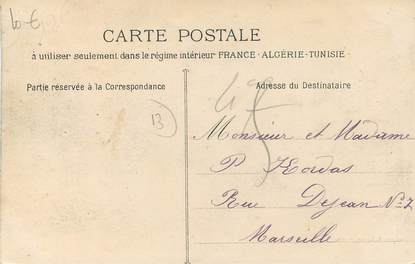 10 €
CARTE POSTALE
à utiliser seulement dans le régime intérieur FRANCE - ALGÉRIE - TUNISIE
Partie réservée à la Correspondance
Adresse du Destinataire
13
Monsieur et Madame
P
Rue Dejean N° 7
Marseille